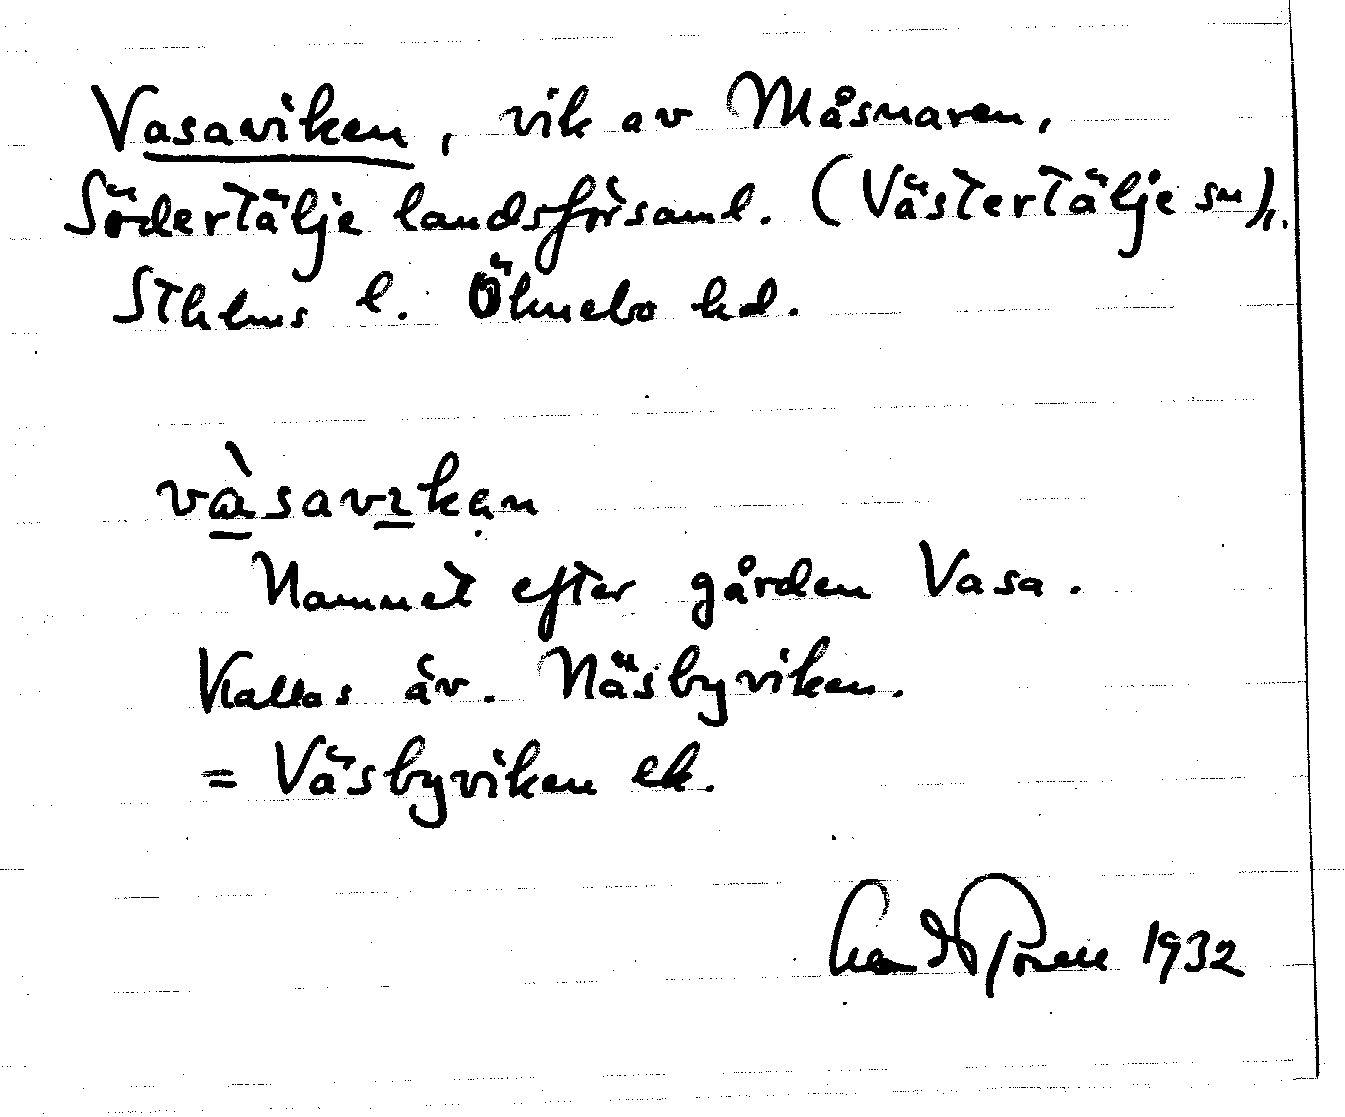 Vasaviken, vik av Måsnaren,
Södertälje landsförsaml. (Västertälje sn),
Sthlms l. Öknebo hd.
vàsavıkən
Namnet efter gården Vasa.
Kallas äv. Näsbyviken.
= Väsbyviken ek.
1932